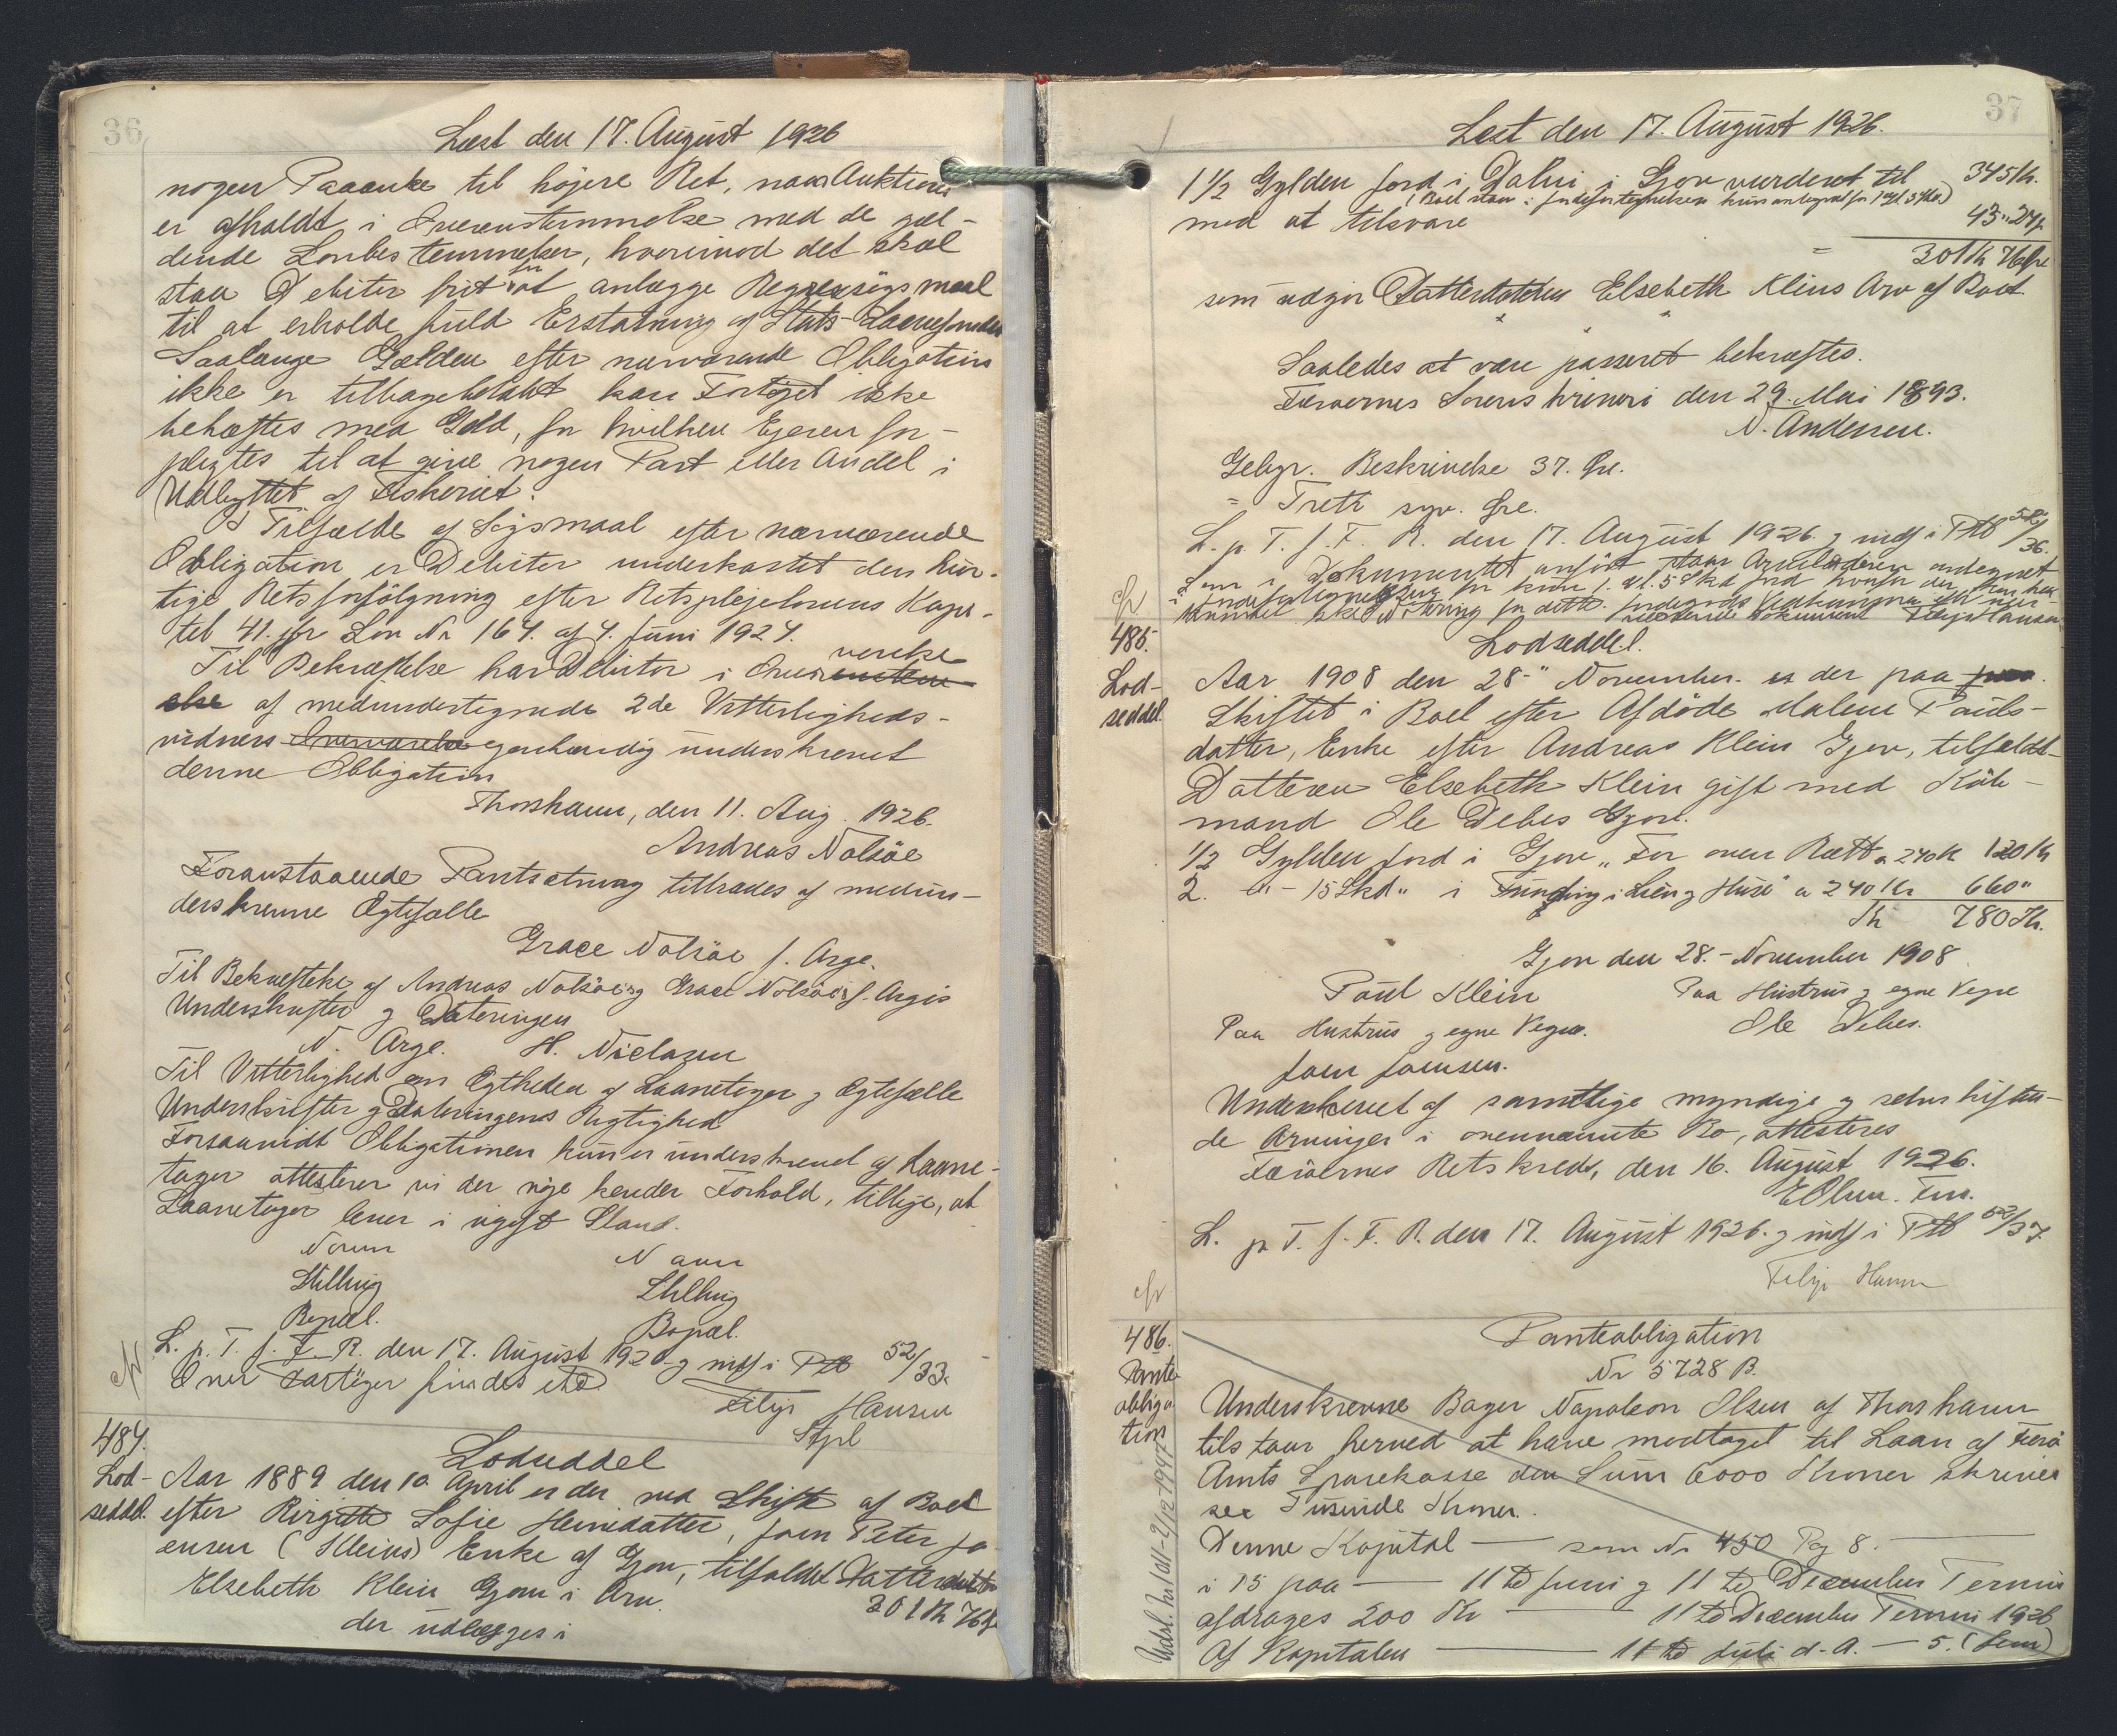 36
Læst den 17. August 1926
nogen Paaanke til højere Ret, naar Auktionen
er afholdt i Overensstemmelse med de gæl-
dende Lovbestemmelser, hvorimod det skal
staa Debitor frit for at anlægge Regressøgsmaal
til at erholde fuld Erstatning af Stats-Laanefonden
Saalænge Gælden efter nærværende Obligation
ikke er tilbagebetalt kan Fartøjet ikke
behæftes med Gæld, for hvilken Ejeren for-
pligtes til at give nogen Part eller Andel i
Udbyttet af Fiskeriet.
I Tilfælde af Søgsmaal efter nærværende
Obligation er Debitor underkastet den hur-
tige Retsforfølgning efter Retsplejelovens Kapi-
tel 41. jfr Lov Nr 164. af 4. Juni 1924.
Til Bekræftelse har Debitor i Overværelse
else af medundertegnede 2de Vitterligheds-
vidners Overværelse egenhændig underskrevet
denne Obligation
Thorshavn, den 11. Aug. 1926.
Andreas Nolsøe
Foranstaaende Pantsætning tiltrædes af medun-
derskrevne Ægtefælle
Grace Nolsøe f. Arge.
Til Bekræftelse af Andreas Nolsøes og Grace Nolsøes f. Arges
Underskrifter og Dateringen
N. Arge. H. Nielasen
Til Vitterlighed om Ægtheden af Laantager og Ægtefælle
Underskrifter og Dateringens Rigtighed
Forsaavidt Obligationen kun er underskrevet af Laane-
tager attesterer vi der nøje kender Forhold, tillige, at
Laanetager lever i ugift Stand.
Navn Navn
Stilling Stilling
Bopæl. Bopæl.
L. p. T. f. F. R. den 17. August 1926 og indf i Ptb 52/33.
Over Fartøjer findes etc
Filip Hansen
Stpl
484.
Lod-
seddel.
Lodseddel
Aar 1889 den 10 April er der ved Skifte af Boet
efter Birgitte Sofie Heinedatter, Joen Peter Jo-
ensen (Kleins) Enke af Gjov, tilfaldet Datterdatter
Elsebeth Klein Gjov i Arv. 301 Kr 76 Ø
der udlægges i
37
Læst den 17. August 1926.
1 1/2 Gylden Jord i Dalni i Gjov vurderet til 345 Kr.
med at tilsvare 43 " 24 Ø
301 Kr 76 Øre
som udgør Datterdatteren Elsebeth Kleins Arv af Boet
Saaledes at være passeret bekræftes.
Færøernes Sorenskriveri den 29. Mai 1893.
N. Andersen.
Gebyr. Beskrivelse 37. Øre.
= Treti syv. Øre.
L. p. T. f. F. R. den 17. August 1926. og indf i Ptb 52/36.
485.
Lod-
seddel.
Lodseddel.
Aar 1908 den 28-" November. er der paa
Skiftet i Boet efter Afdøde Malene Pauls-
datter, Enke efter Andreas Klein Gjov, tilfaldt
Datteren Elsebeth Klein gift med Køb-
mand Ole Debes Gjov.
1/2 Gylden Jord i Gjov "For oven Rætt" a 240 K 120 Kr
2. -"- 15 Skd" i Funding i Lien og Huse" a 240 Kr 660"
Kr 780 Kr.
Gjov den 28. - November 1908
Poul Klein Paa Hustrus og egne Vegne
Paa Hustrus og egne Vegne. Ole Debes.
Joen Joensen.
Underskrevet af samtlige myndige og selvskiften-
de Arvinger i ovennævnte Bo, attesteres
Færøernes Retskreds, den 16. August 1926.
E Olsen. Fm.
L. p T. f. F. R. den 17. August 1926. og indf i Ptb 52/37
Filip Hansen
486.
Pante
obliga
tion
Panteobligation
Nr 5728 B.
Underskrevne Bager Napoleon Olsen af Thorshavn
tilstaar herved at have modtaget til Laan af Færø
Amts Sparekasse den Sum 6000 Kroner skriver
sex Tusinde Kroner.
Denne Kapital — som Nr 450 Pag 8. —
i 15 paa — 11 te Juni og 11 te December Termin
afdrages 200 Kr — 11 te December Termin 1926
Af Kapitalen — 11 te Juli d. A. — 5. (fem)